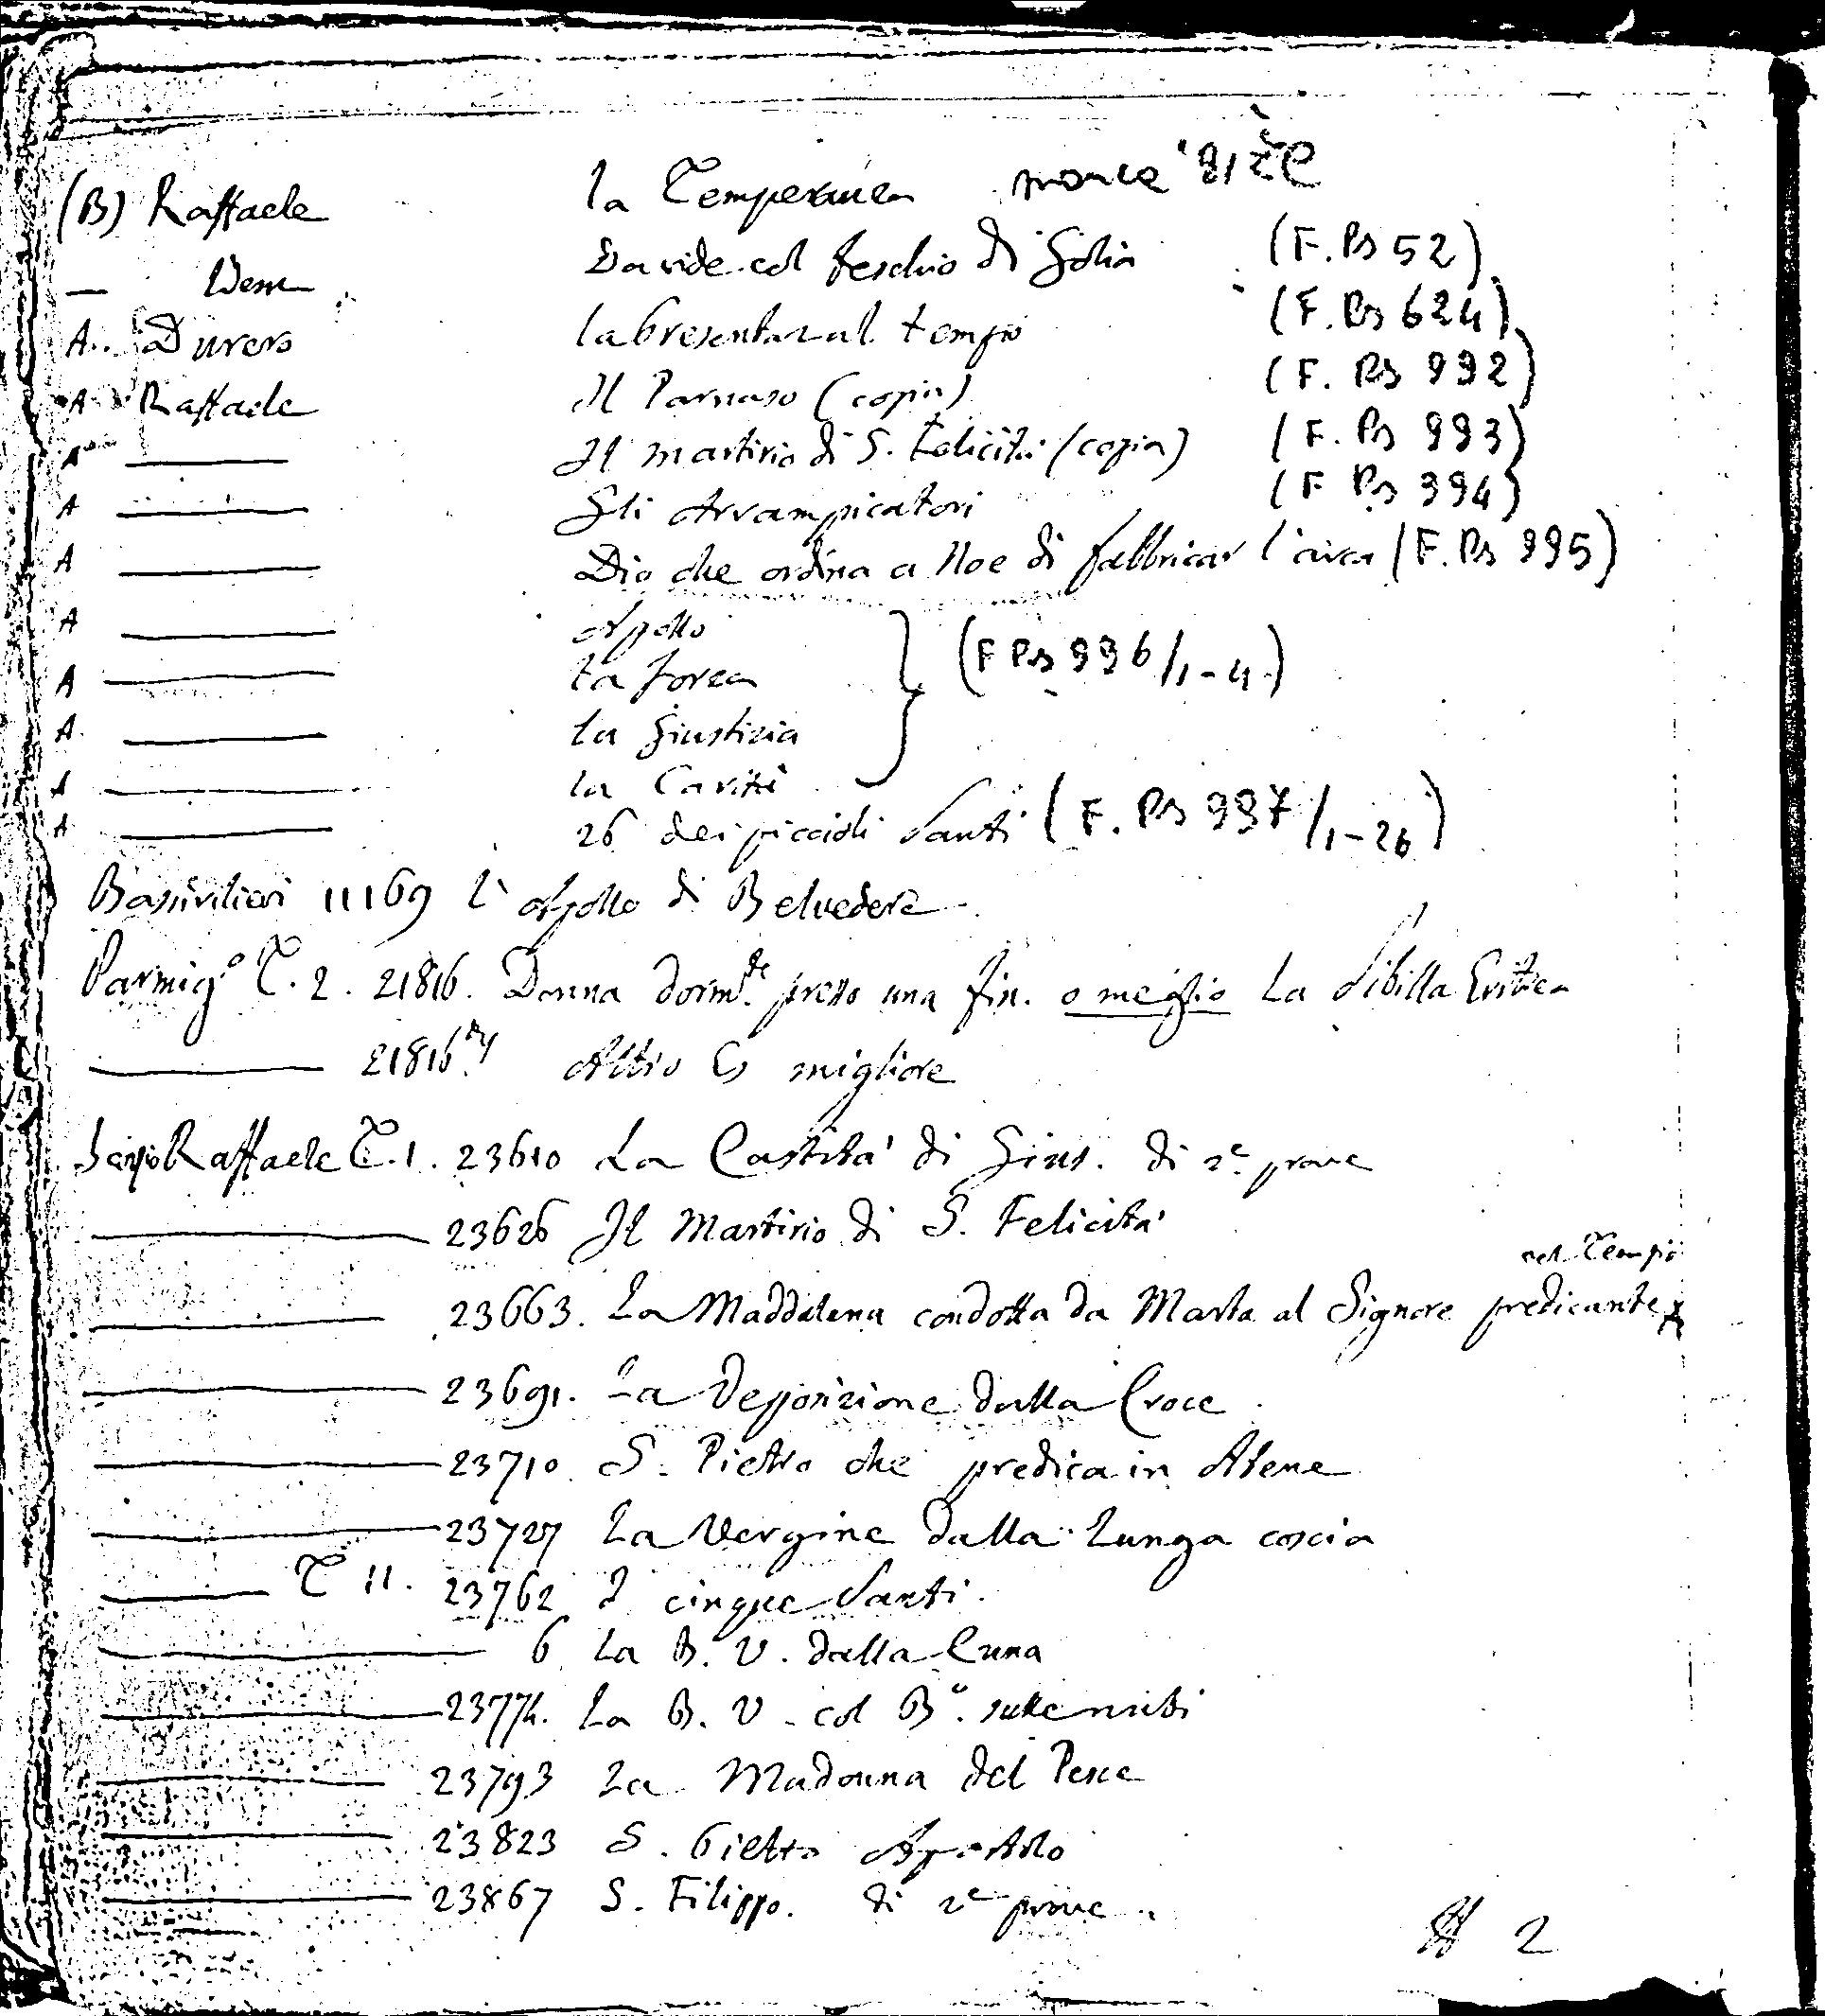 (B) Raffaele La Temperanza manca
— Idem Davide col teschio di Golia (F. Ps 52)
A. Durero la Presentaz al tempio (F. Ps 624)
A Raffaele Il Parnaso (copia) (F. Ps 992)
A —— Il martirio di S. Felicità (copia) (F. Ps 993)
A —— Gli Arrampicatori (F Ps 994)
A —— Dio che ordina a Noe di fabbricar l'arca (F. Ps 995)
A —— Apollo
A —— La forza (F Ps 996/1-4)
A —— La Giustizia
A —— la Carità
A —— 26 dei piccioli Santi (F. Ps 997/1-26)
11169 L'Apollo di Belvedere
Parmig.º T. 2. 21816. Donna dorm.te presso una fin. o meglio La Sibilla Eritrea
—— 21816 Altro Es migliore
Raffaele T. 1. 23610 La Castità di Gius. di 2e prove
—— 23626 Il Martirio di S. Felicita'
nel Tempio
—— 23663. La Maddalena condotta da Marta al Signore predicante
—— 23691. La Depposizione dalla Croce
—— 23710 S. Pietro che predica in Atene
—— 23727 La Vergine dalla Lunga coscia
—— T II. 23762 I cinque Santi.
—— 6 La B. V. dalla Cuna
—— 23774. La B. V. col Bº. sulle nubi
—— 23793 La Madonna del Pesce
—— 23823 S. Pietro Apostolo
—— 23867 S. Filippo. di 2e prove
2